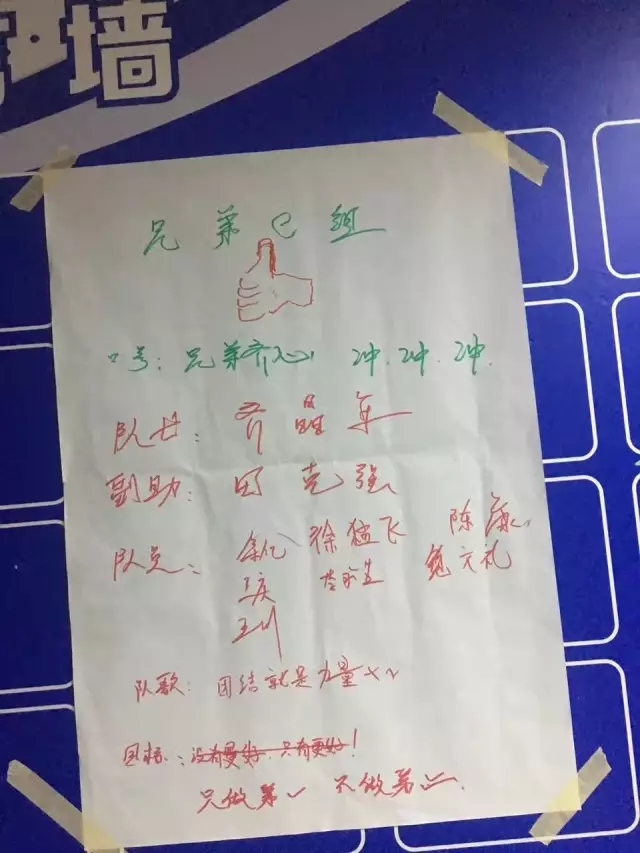 墙
兄弟C组
口号：兄弟齐心！冲.冲.冲.
队长：齐晶年
副助：田克强
队员：徐猛飞 陈康
王庆
王川
队歌：团结就是力量×2
目标：没有最好，只有更好！
只做第一 不做第二.